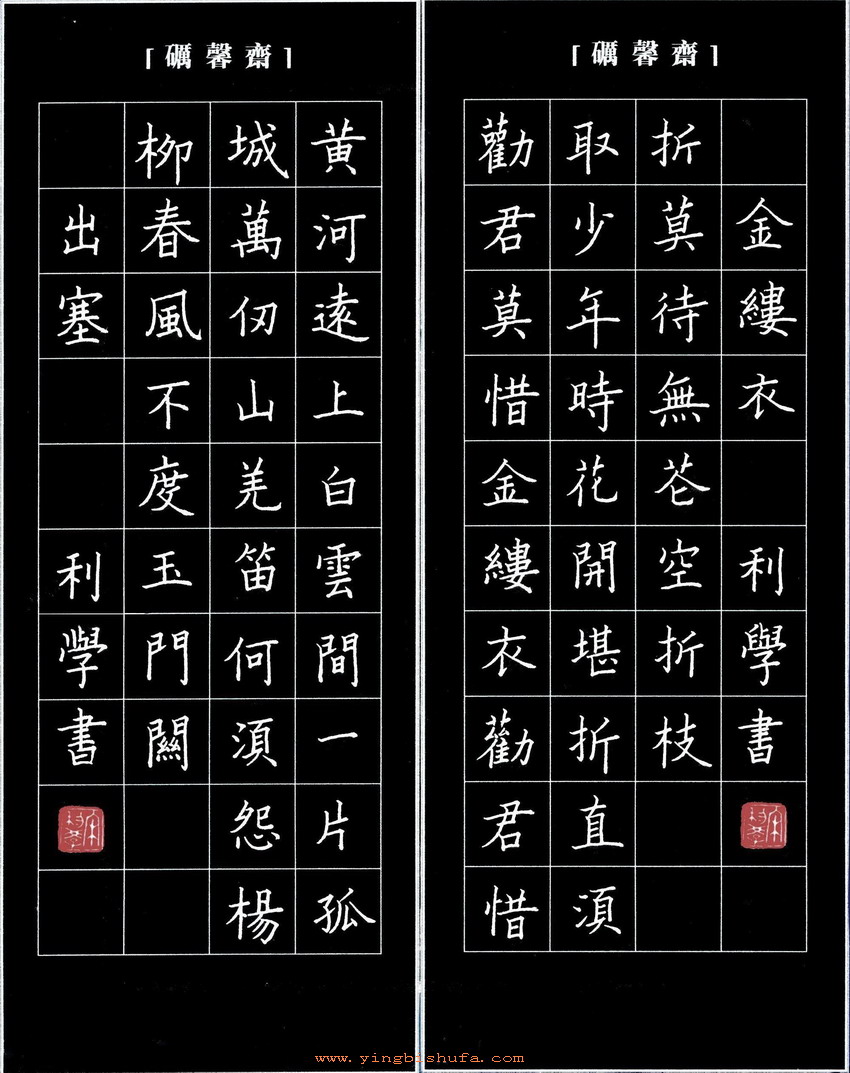 「礪馨齋」
黄河遠上白雲間一片孤
城萬仞山羌笛何須怨楊
柳春風不度玉門關
出塞 利學書
「礪馨齋」
勸君莫惜金縷衣勸君惜
取少年時花開堪折直須
折莫待無花空折枝
金縷衣 利學書
www.yingbishufa.com